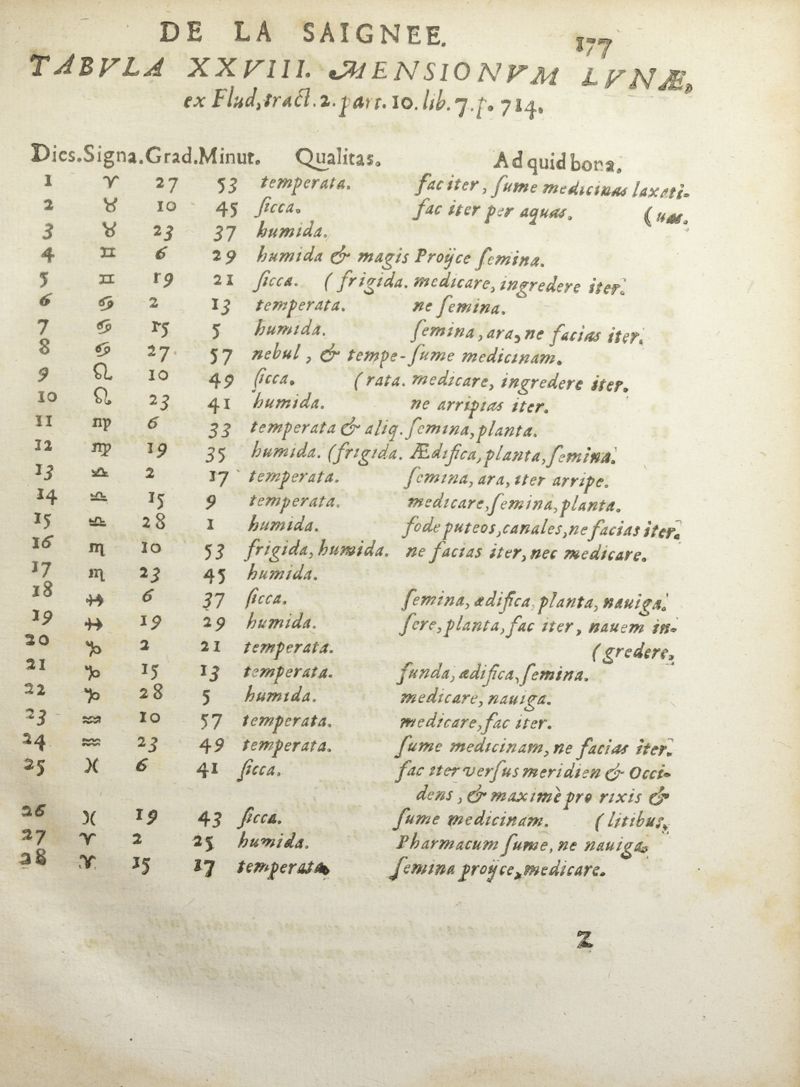 DE LA SAIGNEE. 177
TABVLA XXVIII. MENSIONVM LVNÆ,
ex Flud, tract. 2. part. 10. lib. 7. p. 714.
Dies. Signa. Grad. Minut. Qualitas. Ad quid bona.
1 ♈ 27 53 temperata. fac iter, ſume medicinas laxati-
2 ♉ 10 45 ſicca. fac iter per aquas. (uas.
3 ♉ 23 37 humida.
4 ♊ 6 29 humida & magis Proijce ſemina.
5 ♊ 19 21 ſicca. (frigida. medicare, ingredere iter.
6 ♋ 2 13 temperata. ne ſemina.
7 ♋ 15 5 humida. ſemina, ara, ne facias iter.
8 ♋ 27 57 nebul, & tempe- ſume medicinam.
9 ♌ 10 49 ſicca. (rata. medicare, ingredere iter.
10 ♌ 23 41 humida. ne arripias iter.
11 ♍ 6 33 temperata & aliq. ſemina, planta.
12 ♍ 19 35 humida. (frigida. Ædifica, planta, ſemina.
13 ♎ 2 17 temperata. ſemina, ara, iter arripe.
14 ♎ 15 9 temperata. medicare, ſemina, planta.
15 ♎ 28 1 humida. fode puteos, canales, ne facias iter.
16 ♏ 10 53 frigida, humida. ne facias iter, nec medicare.
17 ♏ 23 45 humida.
18 ♐ 6 37 ſicca. ſemina, ædifica, planta, nauiga.
19 ♐ 19 29 humida. ſere, planta, fac iter, nauem in-
20 ♑ 2 21 temperata. (gredere,
21 ♑ 15 13 temperata. funda, ædifica, ſemina.
22 ♑ 28 5 humida. medicare, nauiga.
23 ♒ 10 57 temperata. medicare, fac iter.
24 ♒ 23 49 temperata. ſume medicinam, ne facias iter.
25 ♓ 6 41 ſicca. fac iter verſus meridien & Occi-
dens, & maximè pro rixis &
26 ♓ 19 43 ſicca. ſume medicinam. (litibus,
27 ♈ 2 25 humida. Pharmacum ſume, ne nauiga,
28 ♈ 15 17 temperata. ſemina proijce, medicare.
Z